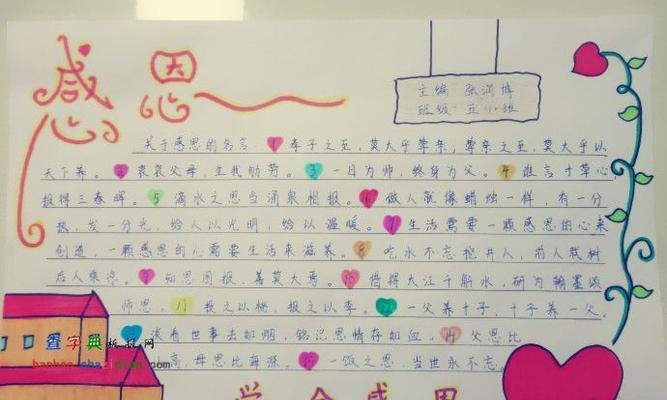 感恩
主编 张润博
班级 五小班
关于感恩的名言 1 孝子之至，莫大乎尊亲；尊亲之至，莫大乎以
天下养。2 哀哀父母，生我劬劳。3 一日为师，终身为父。4 谁言寸草心，
报得三春晖。5 滴水之恩当涌泉相报。6 做人就像蜡烛一样，有一分
热，发一分光，给人以光明，给以温暖。7 生活需要一颗感恩的心来
创造，一颗感恩的心需要生活来滋养。8 吃水不忘挖井人，前人栽树
后人乘凉。9 知恩图报，善莫大焉。10 借得大江千斛水，研为翰墨颂
师恩。11 投之以桃，报之以李。12 一父养十子，十子养一父。
看世事去如烟，铭记恩情存如血。14 父恩比
高，母恩比海深。15 一饭之恩，当世永不忘。
查字典板报网
banbao.chazidian.com
学会感恩